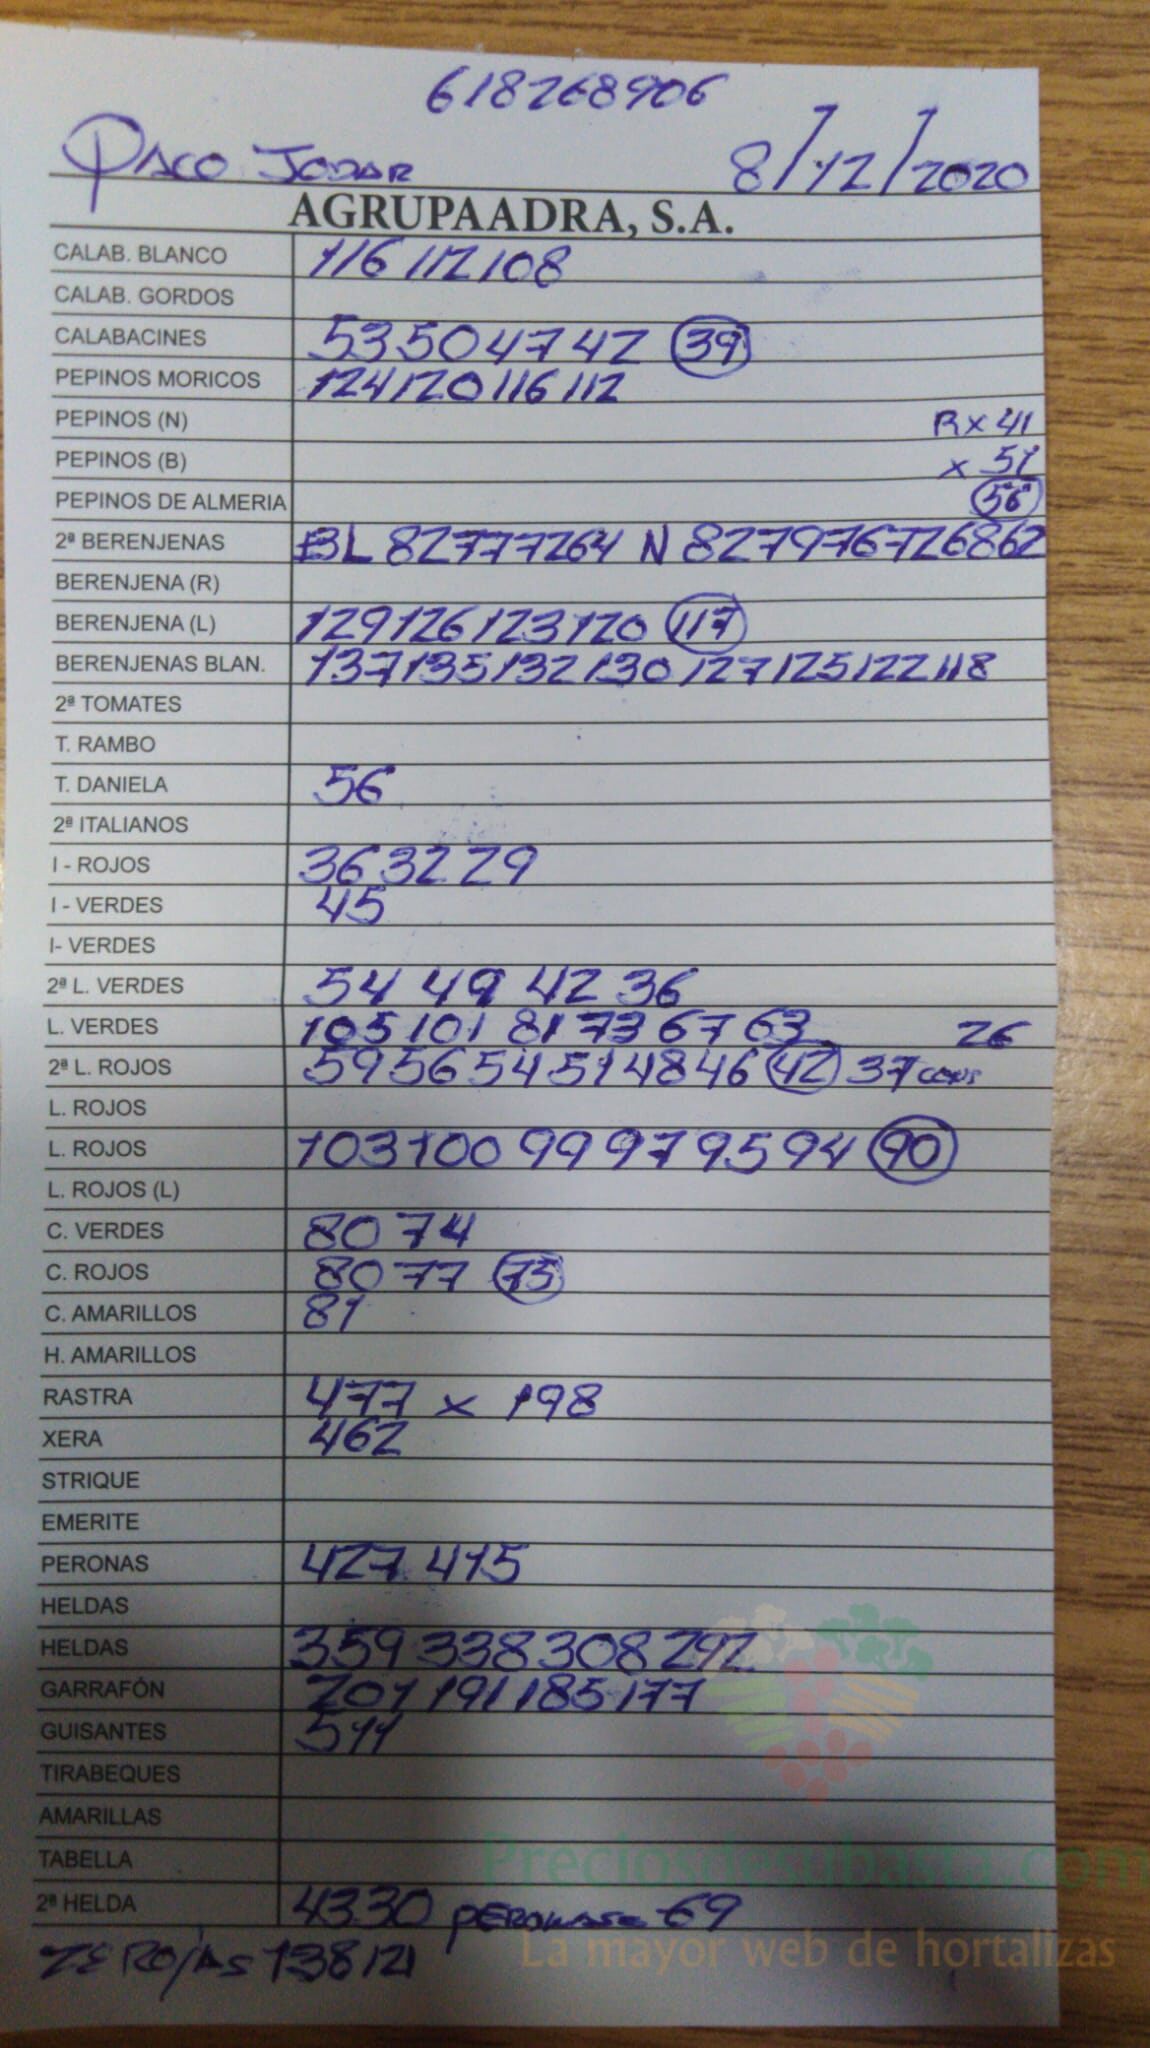 618268906
PACO JODAR 8/12/2020
AGRUPAADRA, S.A.
CALAB. BLANCO 116 112 108
CALAB. GORDOS
CALABACINES 53 50 47 42 39
PEPINOS MORICOS 124 120 116 112
PEPINOS (N) R x 41
PEPINOS (B) x 51
PEPINOS DE ALMERIA 56
2ª BERENJENAS BL 82 77 72 64 N 82 79 76 72 68 62
BERENJENA (R)
BERENJENA (L) 129 126 123 120 117
BERENJENAS BLAN. 137 135 132 130 127 125 122 118
2ª TOMATES
T. RAMBO
T. DANIELA 56
2ª ITALIANOS
I - ROJOS 36 32 29
I - VERDES 45
I- VERDES
2ª L. VERDES 54 49 42 36
L. VERDES 105 101 81 73 67 63 26
2ª L. ROJOS 59 56 54 51 48 46 42 37
L. ROJOS
L. ROJOS 103 100 99 97 95 94 90
L. ROJOS (L)
C. VERDES 80 74
C. ROJOS 80 77 75
C. AMARILLOS 81
H. AMARILLOS
RASTRA 477 x 198
XERA 462
STRIQUE
EMERITE
PERONAS 427 415
HELDAS
HELDAS 359 338 308 292
GARRAFÓN 201 191 185 177
GUISANTES 511
TIRABEQUES
AMARILLAS
TABELLA
2ª HELDA 43 30 69
ROJAS 138 121
Preciosdesubasta.com
La mayor web de hortalizas